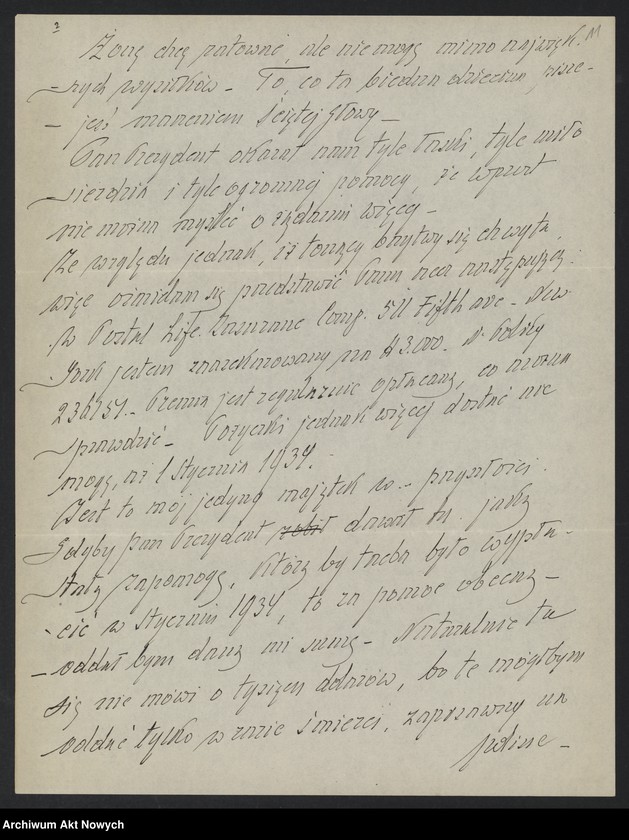 2
M
Żonę chcę ratować, ale nie mogę mimo najwięk-
szych wysiłków - To, co ta biedna dziecina pisze -
- jest marzeniem ściętej głowy -
Pan Prezydent okazał nam tyle łaski, tyle miło
sierdzia i tyle ogromnej pomocy, że wprost
nie można myśleć o żądaniu więcej -
Ze względu jednak, iż tonący brzytwy się chwyta,
więc ośmielam się przedstawić Panu rzecz następującą:
W Postal Life Insurance Comp. 511 Fifth ave - New
York jestem zaasekurowany na $ 3.000 - N. Polisy
236757. - Premia jest regularnie opłacana, co można
sprawdzić - Pożyczki jednak więcej dostać nie
mogę, aż 1 Stycznia 1934.
Jest to mój jedyny majątek w - przyszłości.
Gdyby pan Prezydent dawał mi jaką
stałą zapomogę, którą by trzeba było wypła-
cić w Styczniu 1934, to za pomoc obecną -
- oddał bym daną mi sumę - Naturalnie tu
się nie mówi o tysiącu dolarów, bo te mógłbym
oddać tylko w razie śmierci, zapisawszy na
polisie -
Archiwum Akt Nowych